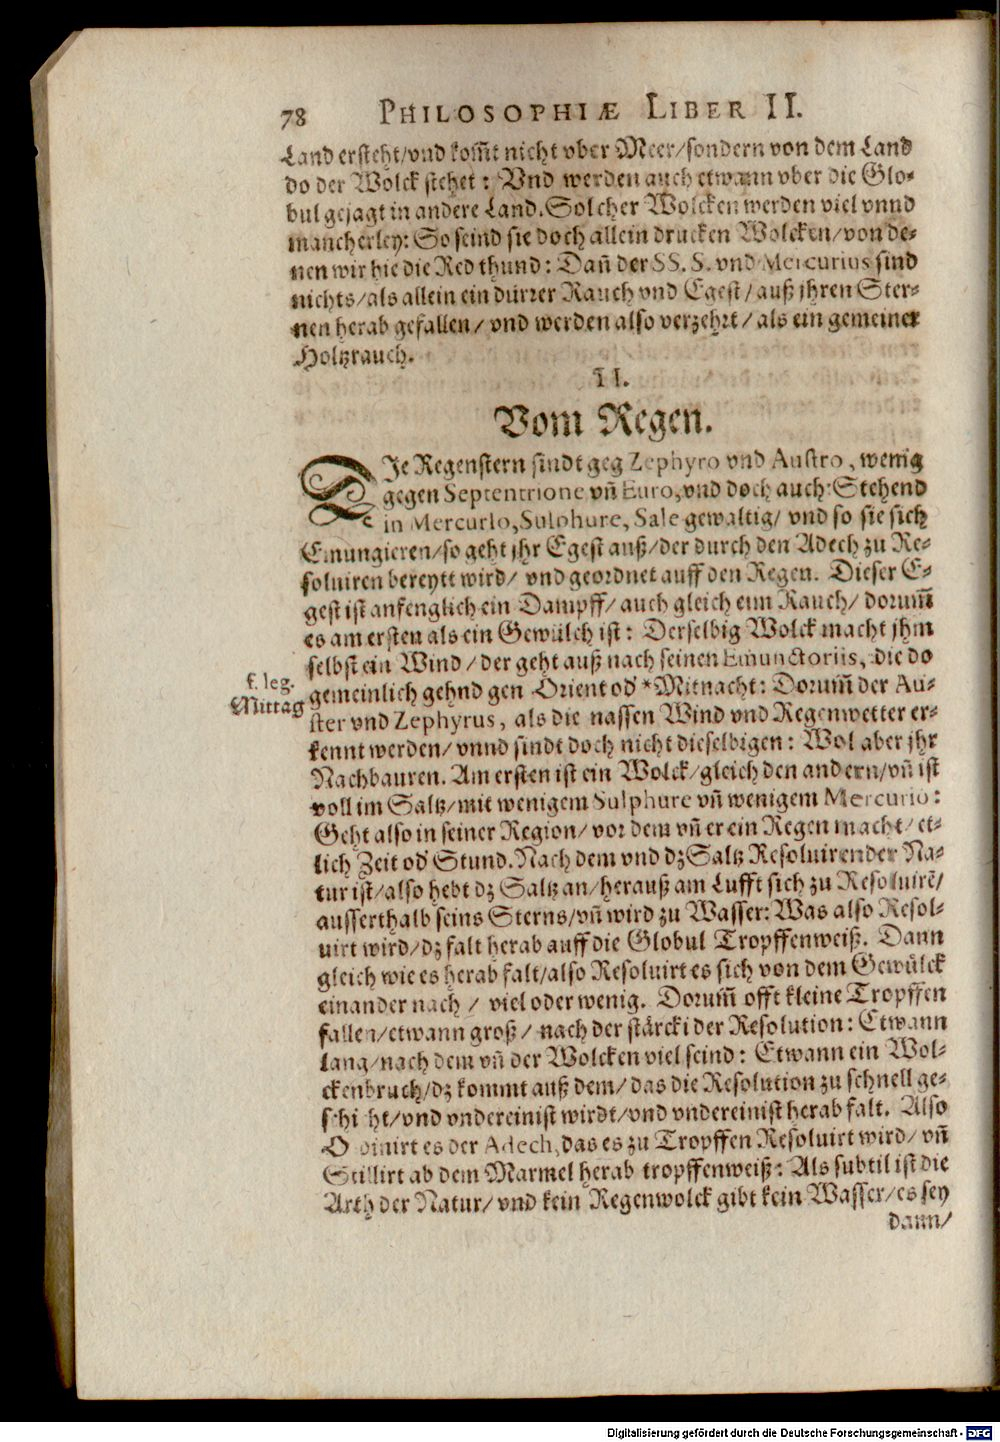 78 PHILOSOPHIÆ LIBER II.
Land ersteht/vnd kom̃t nicht vber Meer/sondern von dem Land
do der Wolck stehet: Vnd werden auch etwann vber die Glo-
bul gejagt in andere Land. Solcher Wolcken werden viel vnnd
mancherley: So seind sie doch allein drucken Wolcken/von de-
nen wir hie die Red thund: Dañ der SS. S. vnd Mercurius sind
nichts/als allein ein dürrer Rauch vnd Egest/auß jhren Ster-
nen herab gefallen/vnd werden also verzehrt/als ein gemeiner
Holtzrauch.
II.
Vom Regen.
DJe Regenstern sindt geg Zephyro vnd Austro, wenig
gegen Septentrione vñ Euro, vnd doch auch: Stehend
in Mercurio, Sulphure, Sale gewaltig/vnd so sie sich
Emungieren/so geht jhr Egest auß/der durch den Adech zu Re-
soluiren bereytt wird/vnd geordnet auff den Regen. Dieser E-
gest ist anfenglich ein Dampff/auch gleich eim Rauch/dorum̃
es am ersten als ein Gewülch ist: Derselbig Wolck macht jhm
selbst ein Wind/der geht auß nach seinen Emunctoriis, die do
gemeinlich gehnd gen Orient od *Mitnacht: Dorum̃ der Au-
f. leg.
Mittag
ster vnd Zephyrus, als die nassen Wind vnd Regenwetter er-
kennt werden/vnnd sindt doch nicht dieselbigen: Wol aber jhr
Nachbauren. Am ersten ist ein Wolck/gleich den andern/vñ ist
voll im Saltz/mit wenigem Sulphure vñ wenigem Mercurio:
Geht also in seiner Region/vor dem vñ er ein Regen macht/et-
lich Zeit od Stund. Nach dem vnd dz Saltz Resoluirender Na-
tur ist/also hebt dz Saltz an/herauß am Lufft sich zu Resoluirẽ/
ausserthalb seins Sterns/vñ wird zu Wasser: Was also Resol-
uirt wird/dz falt herab auff die Globul Tropffenweiß. Dann
gleich wie es herab falt/also Resoluirt es sich von dem Gewülck
einander nach/viel oder wenig. Dorum̃ offt kleine Tropffen
fallen/etwann groß/nach der stärcki der Resolution: Etwann
lang/nach dem vñ der Wolcken viel seind: Etwann ein Wol-
ckenbruch/dz kommt auß dem/das die Resolution zu schnell ge-
schi ht/vnd vndereinist wirdt/vnd vndereinist herab falt. Also
O dinirt es der Adech, das es zu Tropffen Resoluirt wird/vñ
Stillirt ab dem Marmel herab tropffenweiß: Als subtil ist die
Arth der Natur/vnd kein Regenwolck gibt kein Wasser/es sey
dann/
Digitalisierung gefördert durch die Deutsche Forschungsgemeinschaft - DFG